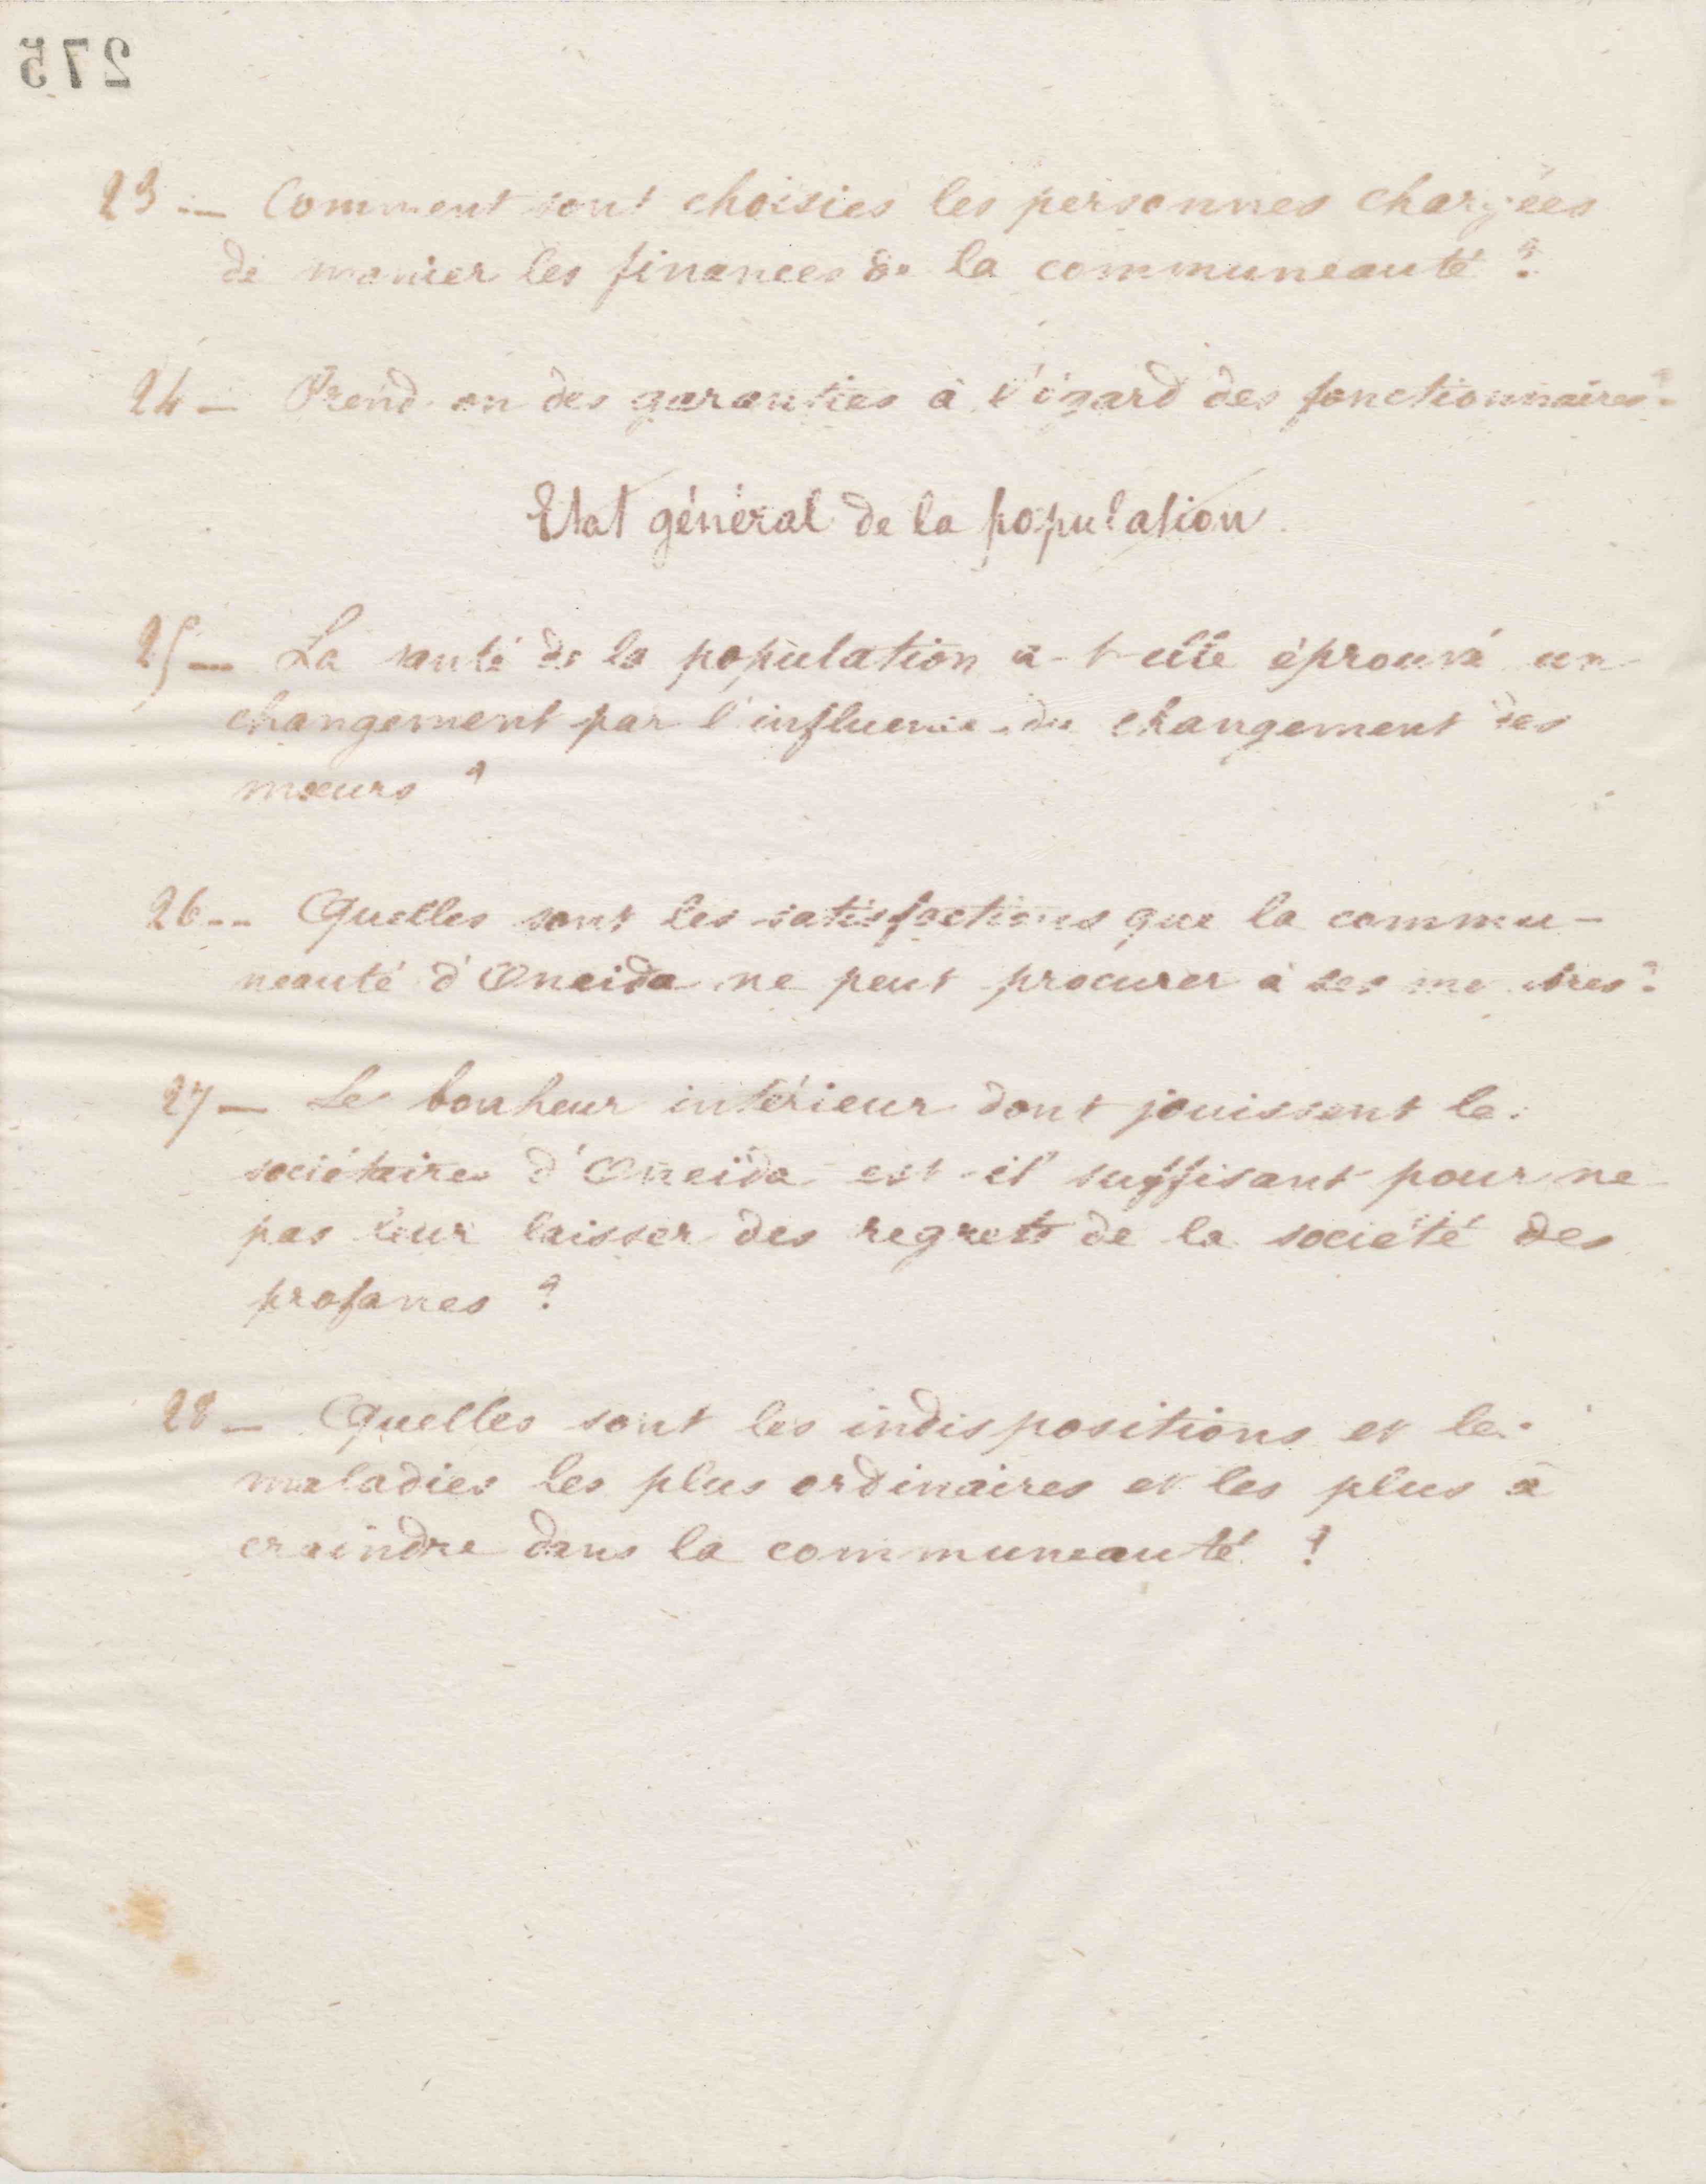 275
23 — Comment sont choisies les personnes chargées
de manier les finances de la communeauté ?
24 — Prend on des garanties à l'égard des fonctionnaires ?
Etat général de la population
25 — La santé de la population a-t-elle éprouvé un
changement par l'influence du changement des
mœurs ?
26 -- Quelles sont les satisfactions que la commu-
neauté d'Oneida ne peut procurer à ses membres ?
27 — Le bonheur intérieur dont jouissent les
sociétaires d'Oneïda est-il suffisant pour ne
pas leur laisser des regrets de la société des
profanes ?
28 — Quelles sont les indispositions et les
maladies les plus ordinaires et les plus à
craindre dans la communeauté ?